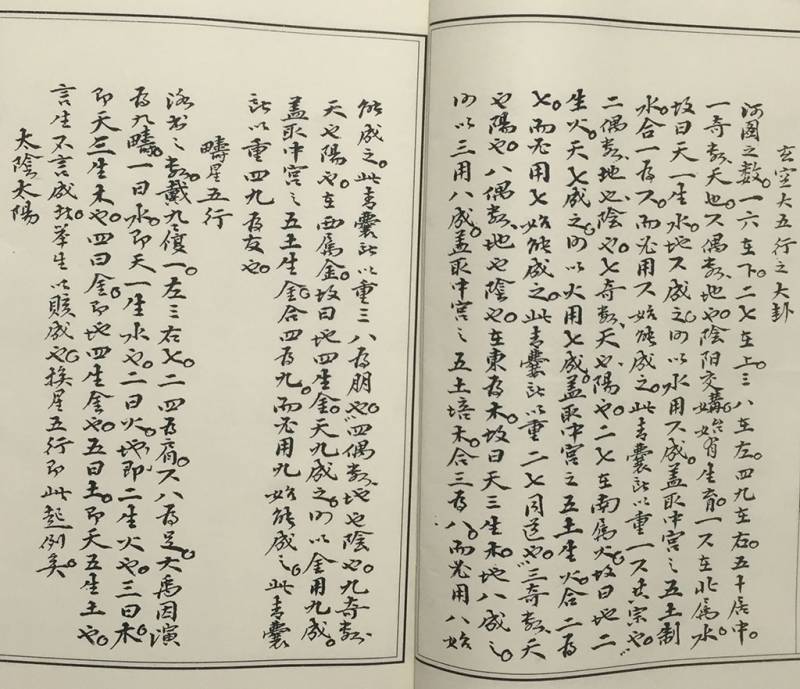 玄空大五行之大卦
河圖之數。一六在下。二七在上。三八在左。四九在右。五十居中。
一奇數。天也。六偶數。地也。陰陽交媾。始有生育。一六在北屬水。
故曰天一生水。地六成之。所以水用六成。蓋取中宮之五土制
水。合一為六。而必用六始能成之。此青囊所以重一六共宗也。
二偶數。地也。陰也。七奇數。天也。陽也。二七在南屬火。故曰地二
生火。天七成之。所以火用七成。蓋取中宮之五土生火。合二為
七。而必用七始能成之。此青囊所以重二七同道也。三奇數。天
也。陽也。八偶數。地也。陰也。在東為木。故曰天三生木。地八成之。
所以三用八成。蓋取中宮之五土培木。合三為八。而必用八始
能成之。此青囊所以重三八為朋也。四偶數。地也。陰也。九奇數。
天也。陽也。在西屬金。故曰地四生金。天九成之。所以金用九成。
蓋取中宮之五土生金。合四為九。而必用九始能成之。此青囊
所以重四九為友也。
疇星五行
洛書之數。戴九履一。左三右七。二四為肩。六八為足。大禹因演
為九疇。一曰水。即天一生水也。二曰火。即地二生火也。三曰木。
即天三生木也。四曰金。即地四生金也。五曰土。即天五生土也。
言生不言成者。舉生以賅成也。挨星五行即此起例矣。
太陰太陽